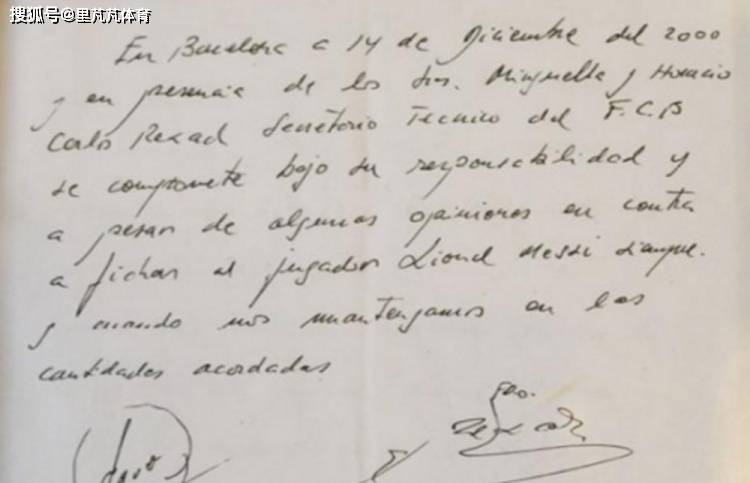 搜狐号@里芃芃体育
En Barcelona a 14 de Diciembre del 2000
y en presencia de los Srs. Minguella y Horacio
Carlos Rexach Secretario Tecnico del F.C.B
se compromete bajo su responsabilidad y
a pesar de algunas opiniones en contra
a fichar al jugador Lionel Messi siempre
y cuando nos mantengamos en las
cantidades acordadas
Fdo.